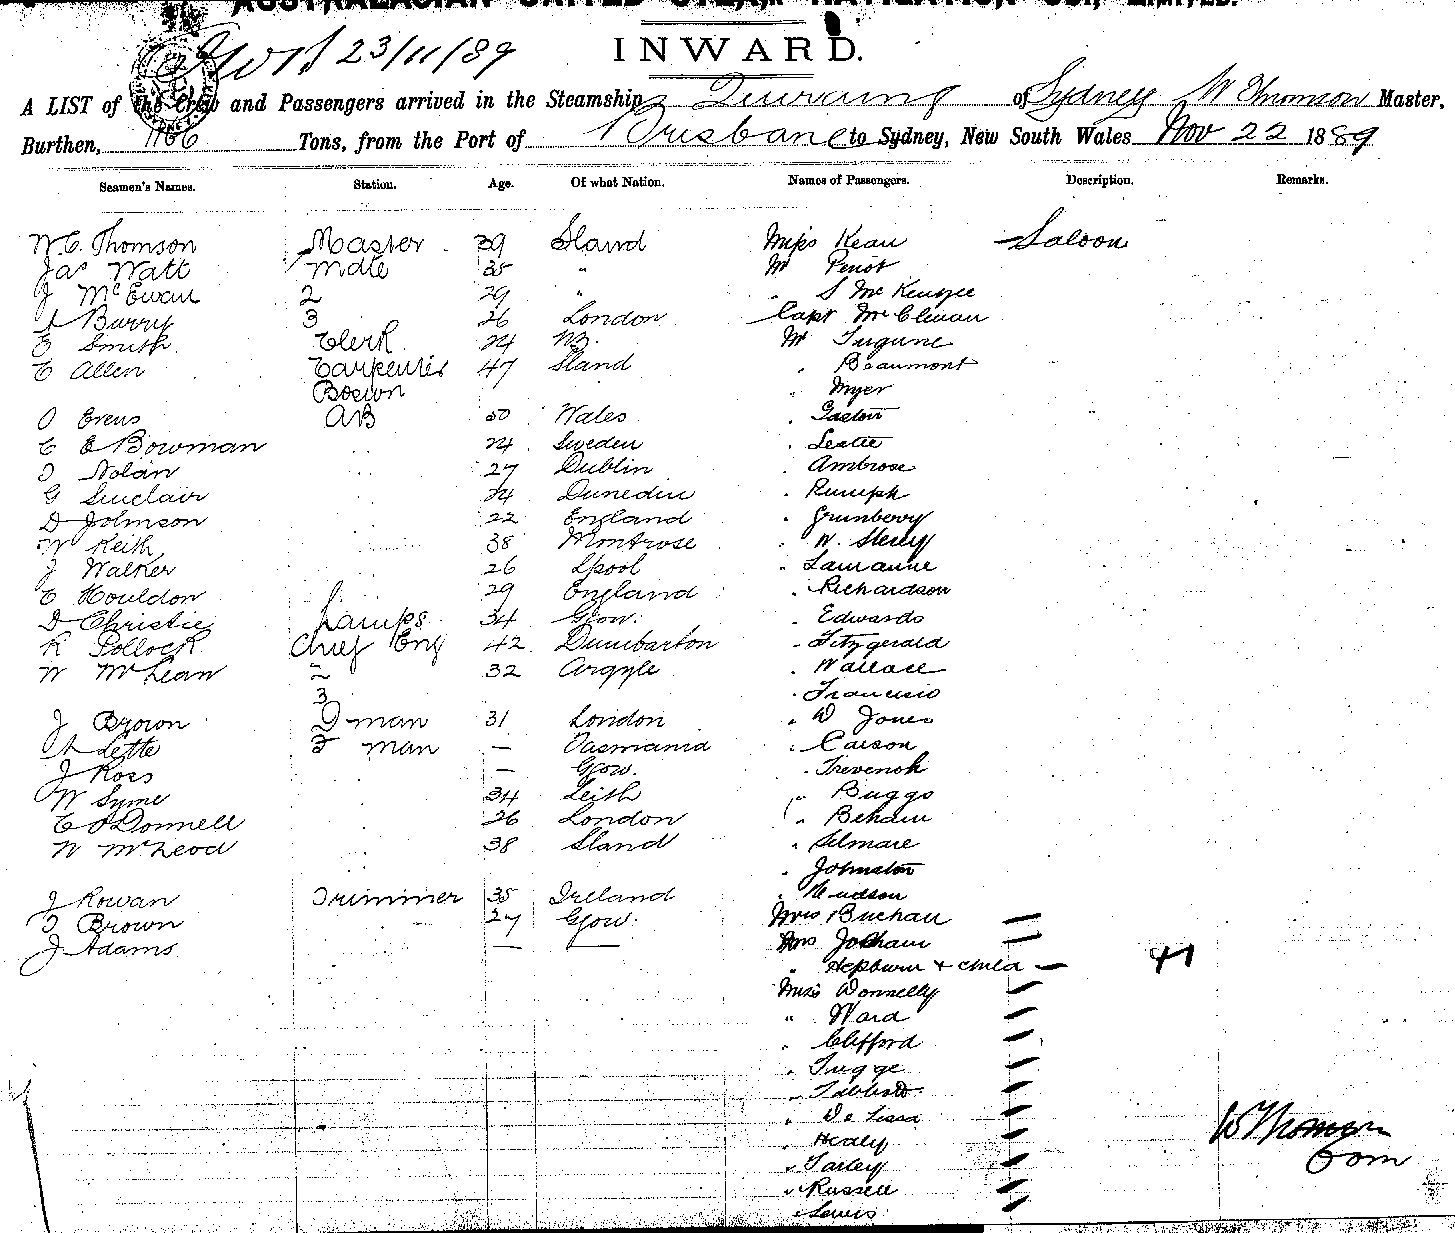 AUSTRALASIAN UNITED STEAM NAVIGATION CO., LIMITED.
23/11/89
INWARD.
A LIST of the Crew and Passengers arrived in the Steamship of Sydney W Thomson Master,
Burthen, 1166 Tons, from the Port of Brisbane to Sydney, New South Wales Nov 22 1889
Seamen's Names. Station. Age. Of what Nation. Names of Passengers. Description. Remarks.
W. C. Thomson Master 39 Sland Miss Kean Saloon
Jas Watt Mate 35 " Mr
J McEwan 2 29 " " S McKenzee
Burry 3 26 London Capt
E Smith Clerk 24 NZ. Mr
C Allen Carpenter 47 Sland " Beaumont
Boswn " Myer
O Evens AB 50 Wales " Gaston
C E Bowman " 24 Sweden " Leslie
Nolan " 27 Dublin " Ambrose
G Sinclair " 24 Dunedin " Rumph
D Johnson " 22 England "
W Keith " 38 Montrose " W.
J Walker " 26 Lpool "
C Houldon " 29 England " Richardson
D Christie Lamps 34 Gow. " Edwards
R Pollock Chief Eng 42 Dumbarton " Fitzgerald
W McLean 2 32 Argyle " Wallace
3 "
J Brown man 31 London " D Jones
Lette F man — Tasmania " Carson
J Ross — Gow. "
W Syme 34 Leith " Buggs
C O'Donnell 26 London "
W McLeod 38 Sland "
" Johnston
J Rowan Trimmer 35 Ireland " Hudson
Brown " 27 Gow. Mrs Buchan
J Adams — — Mrs
" Hepburn + child 41
Miss Donnelly
" Ward
" Clifford
" Tugge
"
" De Lissa
" Healy
" Farley
" Russell
" Lewis
W Thomson
Com